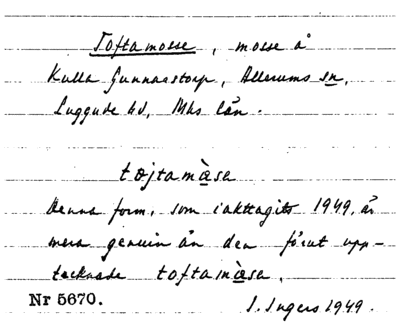 Toftamosse, mosse å
Kulla Gunnarstorp, Allerums sn,
Luggude hd, Mhs län.
tøjtamæ̀sa
Denna form, som iakttagits 1949, är
mera genuin än den förut upp-
tecknade toftamæ̀sa.
Nr 5670.
I. Ingers 1949.